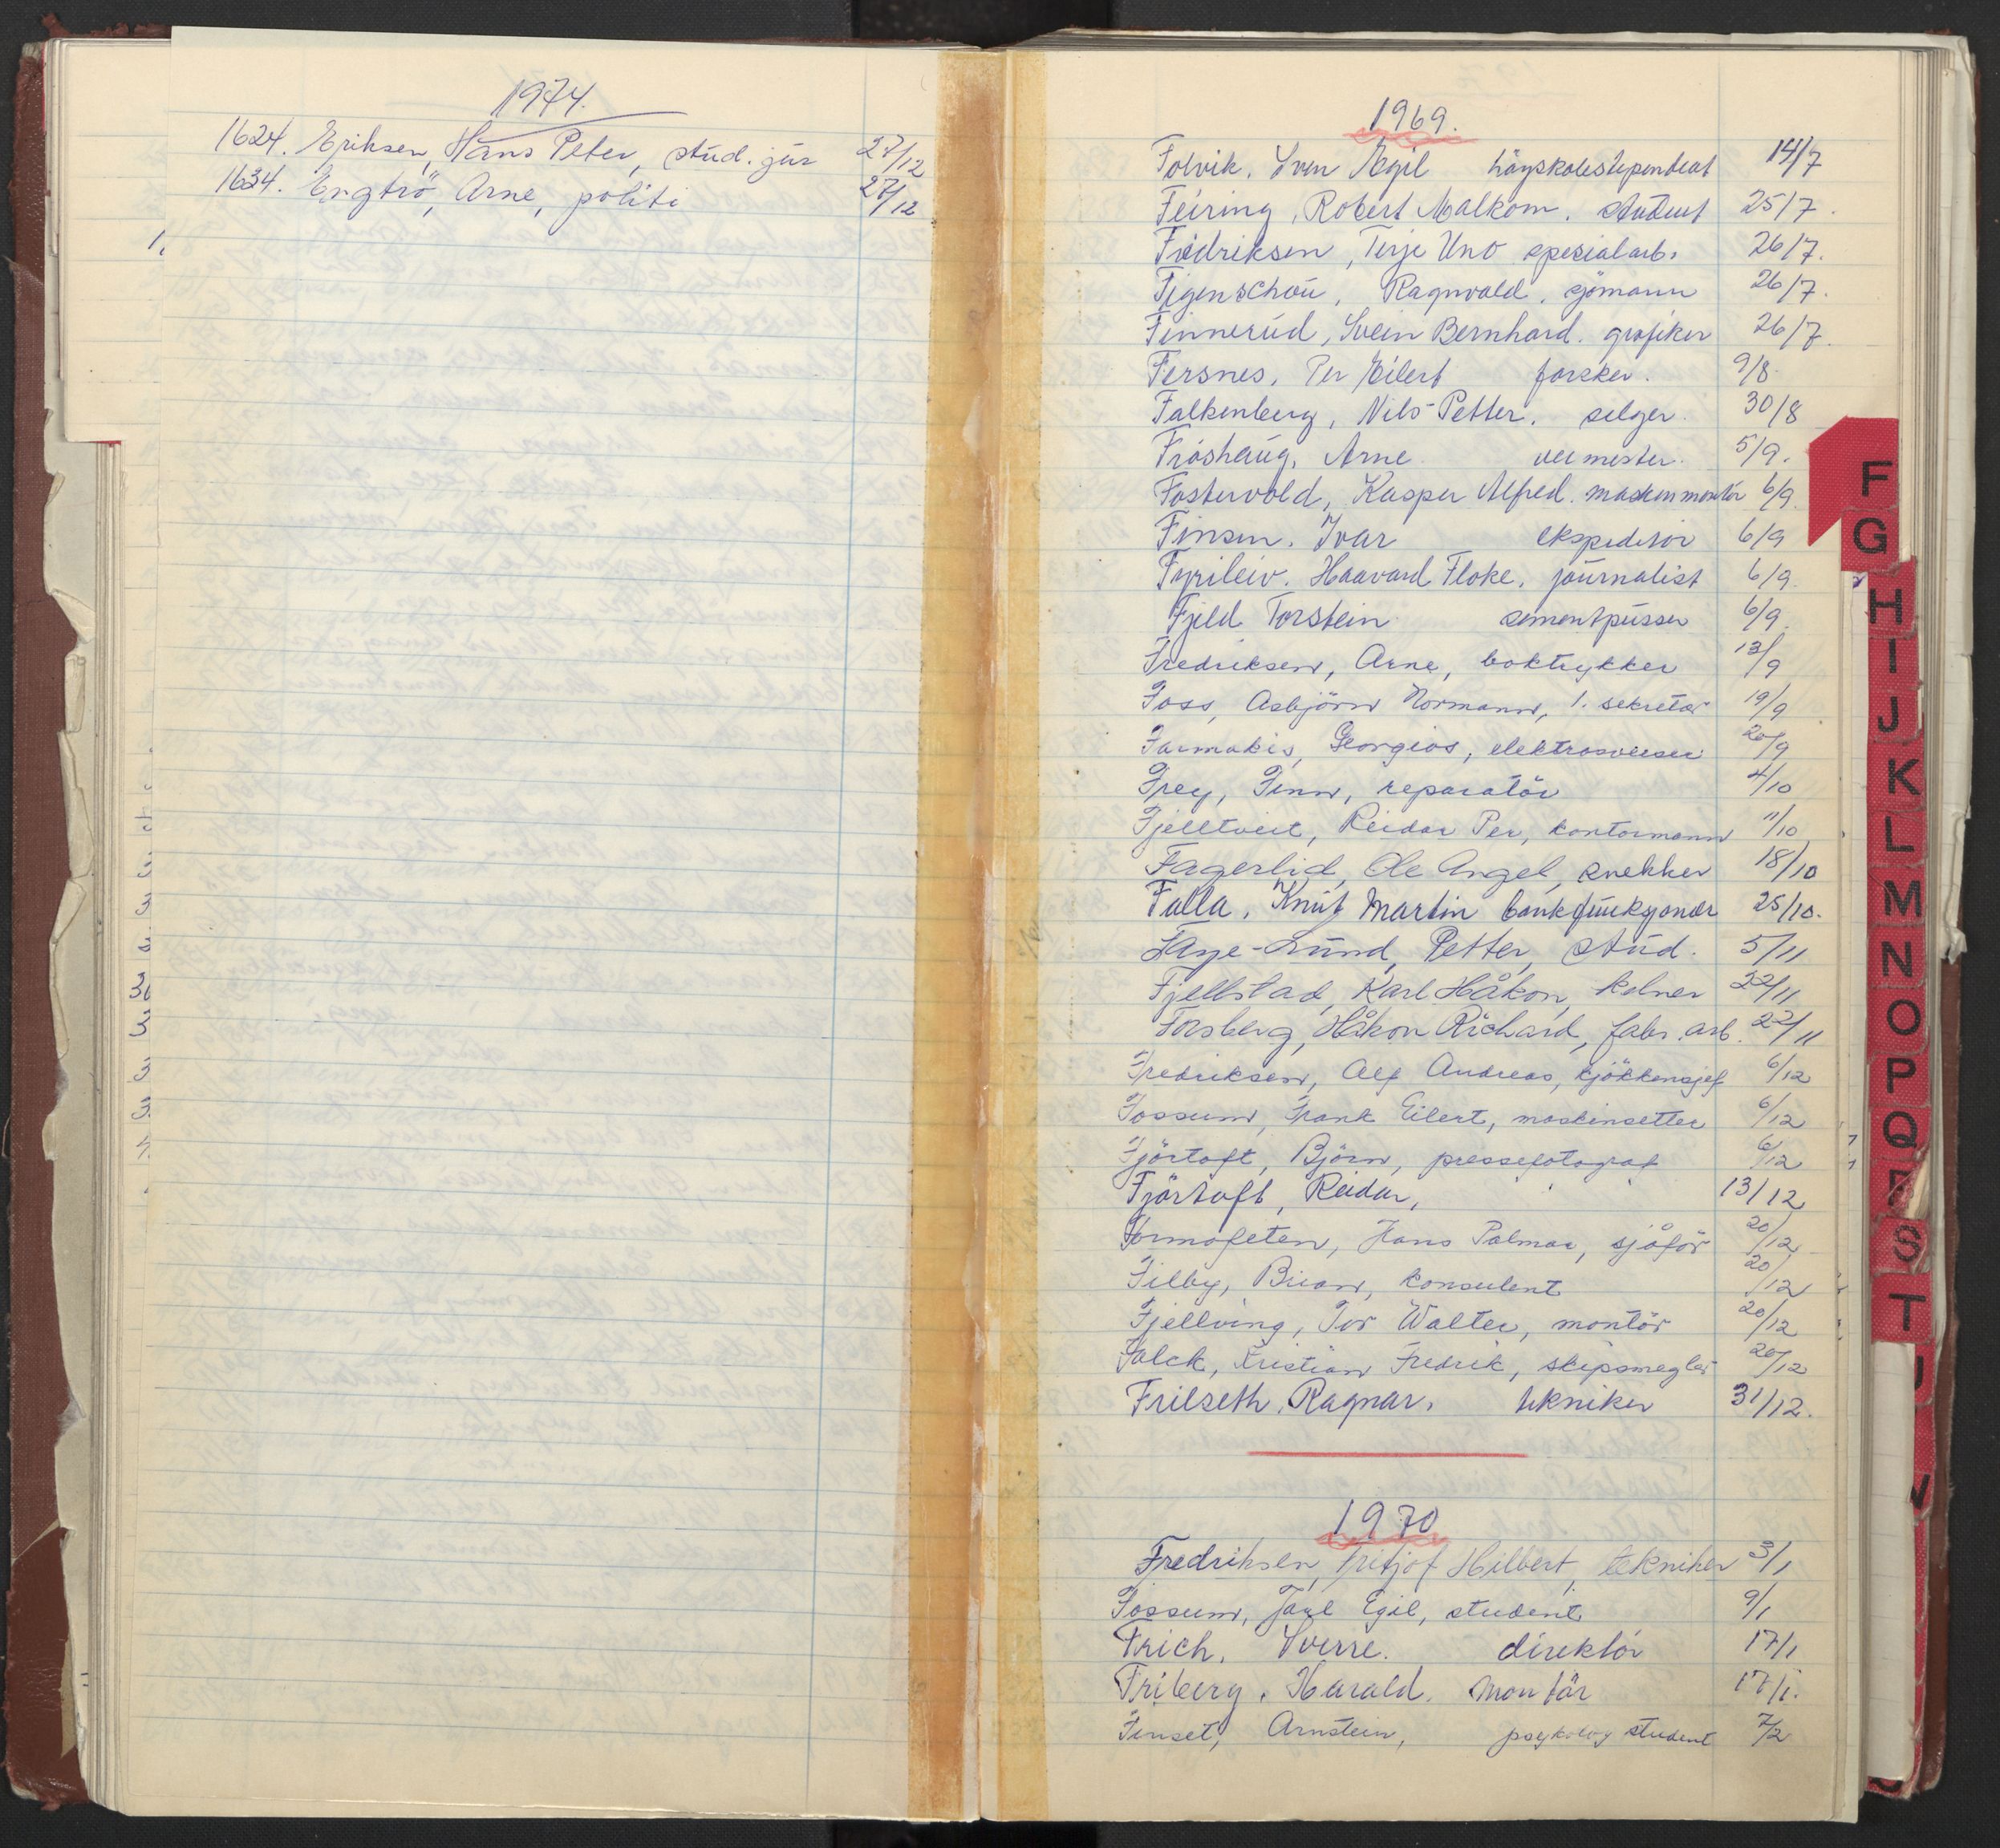 1974.
1624. Eriksen, Hans Peter, stud. jur 27/12
1634. Engtrö, Arne, politi 27/12
1969.
Folvik, Sven Egil högskolestipendeat 14/7
Feiring, Robert Malkom. student 25/7.
Fredriksen, Terje Uno spesialarb. 26/7.
Figenschou, Ragnvald, sjömann 26/7.
Finnerud, Svein Bernhard. grafiker 26/7.
Fersnes, Per Eilert forsker. 9/8.
Falkenberg, Nils-Petter. selger. 30/8
Fröshaug, Arne. 5/9.
Fostervold, Kasper Alfred. maskinmontör 6/9.
Finsen. Ivar ekspeditör 6/9
Fyrileiv. Haavard Floke. journalist 6/9.
Fjeld Torstein sementpusser 6/9.
Fredriksen, Arne, boktrykker 13/9
Foss, Asbjörn Normann, 1. sekretær 19/9
Farmakis, Georgios, elektrosveiser 20/9
Frey, Finn, reparatör 4/10
Fjelltveit, Reidar Per, kontormann 11/10
Fagerlid, Ole Angel, snekker 18/10
Falla, Knut Martin bankfunksjonær 25/10.
Faye-Lund, Petter, stud. 5/11
Fjellstad, Karl Håkon, kelner 22/11
Forsberg, Håkon Richard, fabr. arb. 22/11
Fredriksen, Alf Andreas, kjökkensjef 6/12
Fossum, Frank Eilert, maskinsetter 6/12
Fjörtoft, Björn, pressefotograf 6/12
Fjörtoft, Reidar, " " 13/12
Formofeten, Hans Palmar, sjåför 20/12
Filby, Brian, konsulent 20/12
Fjellving, Tor Walter, montör 20/12
Falck, Kristian Fredrik, skipsmegler 20/12
Frilseth, Ragnar. tekniker 31/12.
1970
Fredriksen, Fritjof Hilbert, tekniker 3/1
Fossum, Jarl Egil, student 9/1
Frich, Sverre. direktör 17/1
Friberg, Harald. Montör 17/1.
Finset, Arnstein, psykologstudent 7/2
F
G
H
I
J
K
L
M
N
O
P
Q
R
S
T